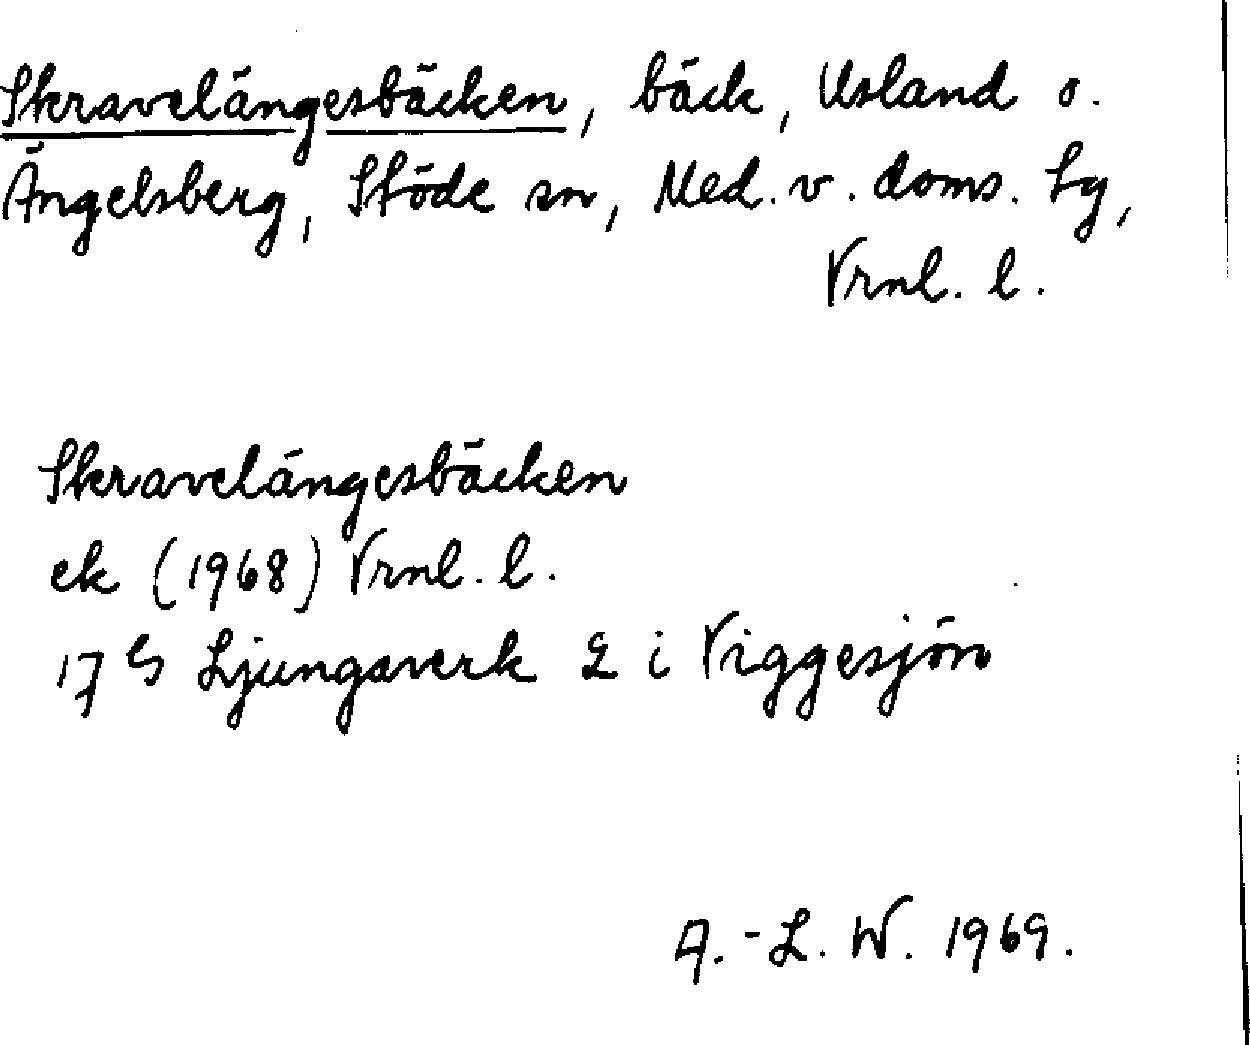 Skravelängesbäcken, bäck, Usland o.
Ängelsberg, Stöde sn, Med. v. doms. tg,
Vrnl. l.
Skravelängesbäcken
ek (1968) Vrnl. l.
17 Ljungaverk 2 i Viggesjön
A.-L. W. 1969.